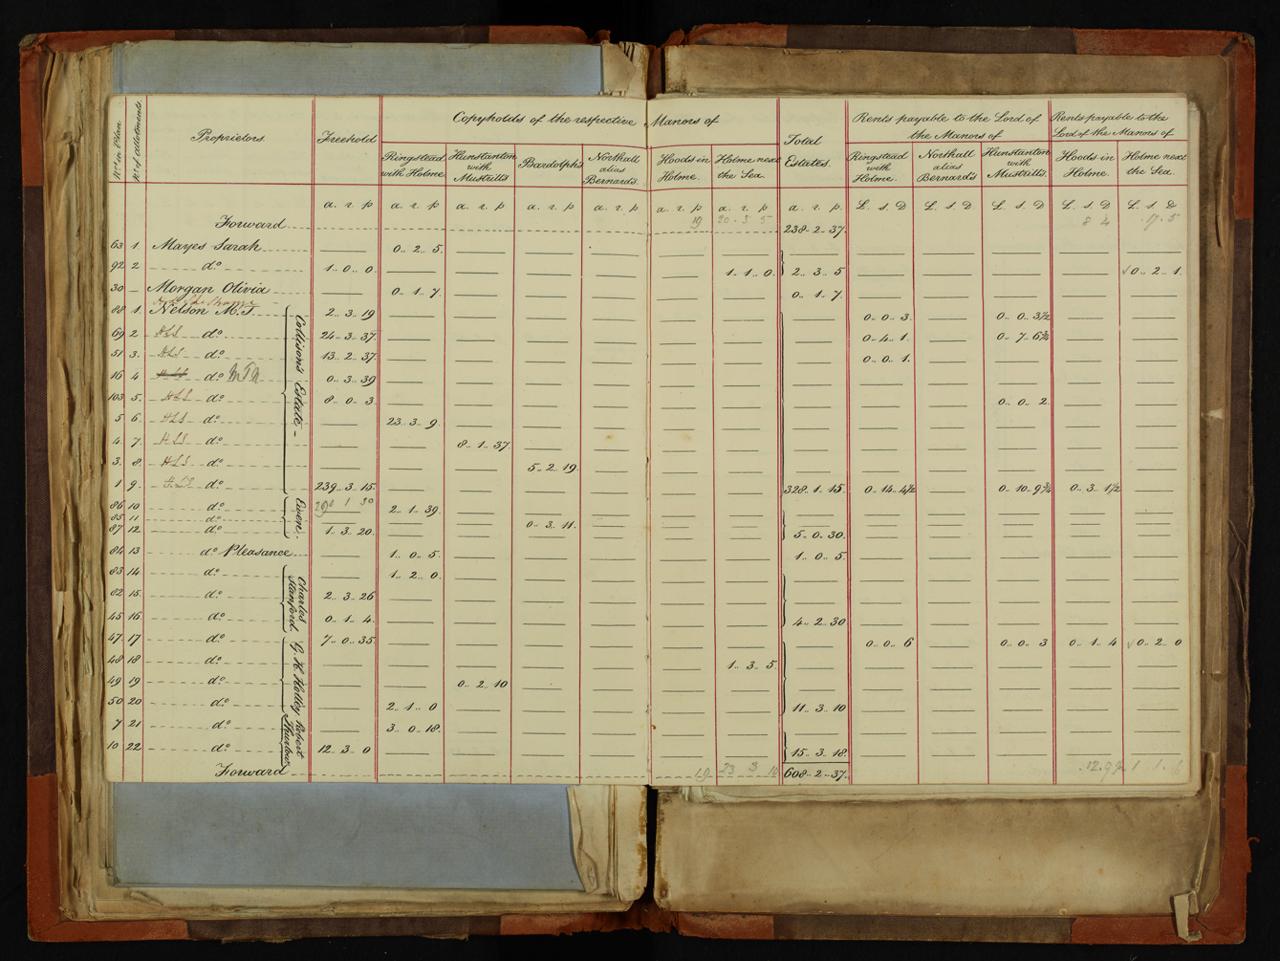 Nos. in Plan
No. of Allotments
Proprietors
Freehold
Copyholds of the respective Manors of
Ringstead with Holme
Hunstanton with Mustrells
Bardolphs
Northall alias Bernards
Hoods in Holme
Holme next the Sea
Total Estates
Rents payable to the Lord of the Manors of
Ringstead with Holme
Northall alias Bernards
Hunstanton with Mustrells
Rents payable to the Lord of the Manors of
Hoods in Holme
Holme next the Sea
a. r. p a. r. p a. r. p a. r. p a. r. p a. r. p a. r. p a. r. p £. s. D £. s. D £. s. D £. s. D £. s. D
Forward 19 20. 3 5 238. 2. 37. 8 4 .17. 5
63 1. Mayes Sarah 0.. 2.. 5.
92 2 do 1.. 0.. 0. 1. 1. 0. 2.. 3.. 5 √0.. 2.. 1.
30 — Morgan Olivia 0.. 1.. 7. 0.. 1.. 7.
88 1. Nelson M.T 2.. 3.. 19 0.. 0.. 3. 0.. 0.. 3½
69 2 HLS do 24.. 3.. 37. 0.. 4.. 1. 0.. 7.. 6¾
51 3. HLS do 13.. 2.. 37. 0.. 0.. 1.
16 4 HLS do 0.. 3.. 39
103 5. HLS do 8.. 0.. 3. 0.. 0.. 2.
5 6. HLS do 23.. 3.. 9.
4 7. HLS do 8.. 1.. 37.
3. 8. HLS do 5.. 2.. 19.
1 9. HLS do 239.. 3.. 15. 328.. 1.. 15. 0.. 14.. 4½ 0.. 10.. 9¾ 0.. 3.. 1½
Collison's Estate
290 1 30
86 10 do 2.. 1.. 39.
85 11 do 0.. 3.. 11.
87 12 do 1.. 3.. 20. 5.. 0.. 30.
Ewen.
84 13 do Pleasance 1.. 0.. 5. 1.. 0.. 5.
83 14 do 1.. 2.. 0.
82 15. do 2.. 3.. 26
45 16 do 0.. 1.. 4. 4.. 2.. 30
Charles Stanford.
47 17 do 7.. 0.. 35. 0.. 0.. 6 0.. 0.. 3 0.. 1.. 4 √0.. 2.. 0
48 18 do 1.. 3.. 5.
49 19 do 0.. 2.. 10
50 20 do 2.. 1.. 0 11.. 3.. 10
G. H. Holley
7 21 do 3.. 0.. 18.
10 22 do 12.. 3.. 0 15.. 3.. 18.
Robert Thurlow
Forward 19 23 3 10 608.. 2.. 37. .12.9½ 1 . 1 . 6